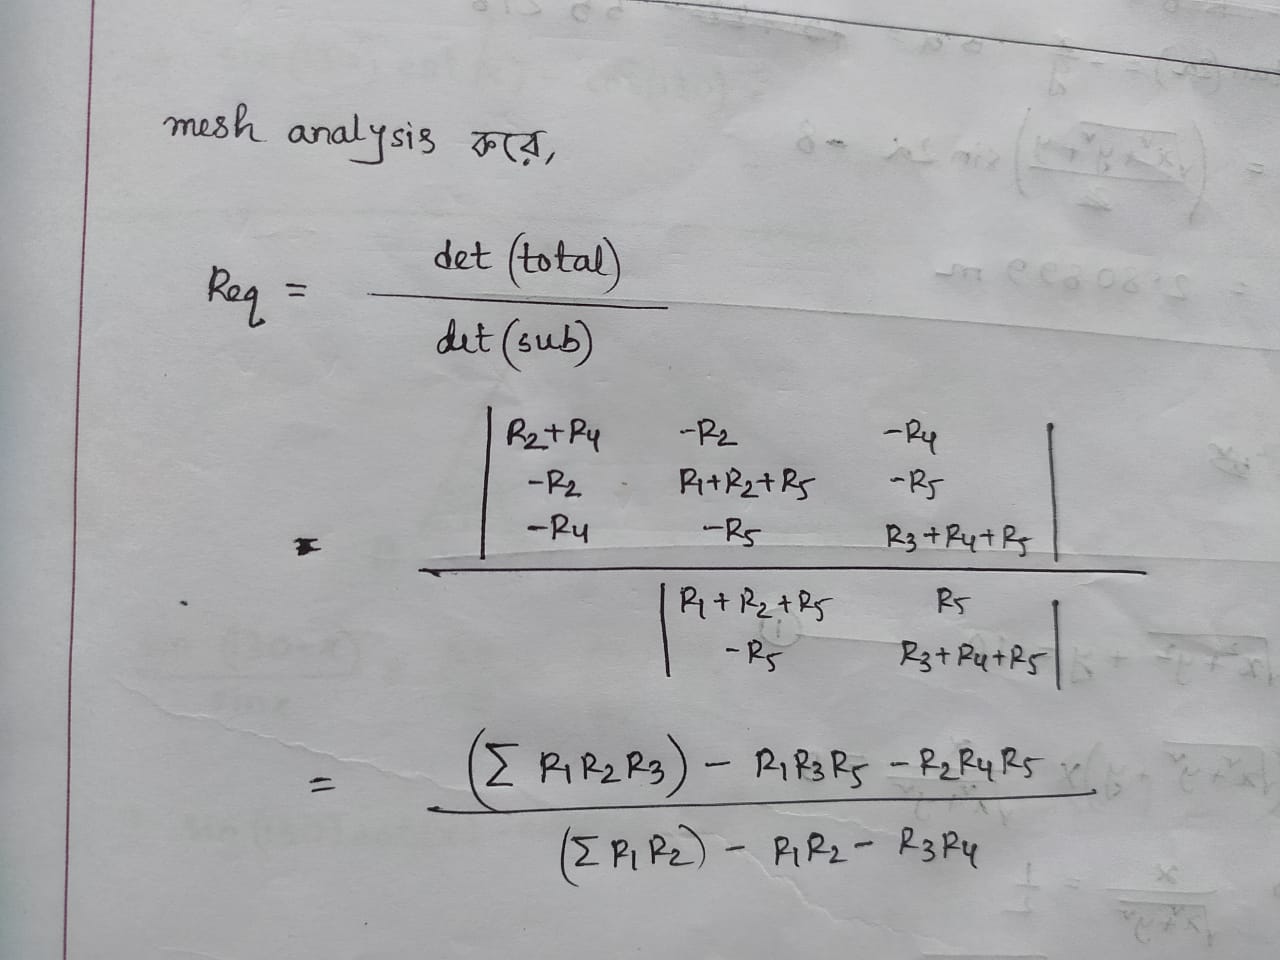 mesh analysis করে,
Req = det (total) / det (sub)
= | R₂+R₄ -R₂ -R₄ |
| -R₂ R₁+R₂+R₅ -R₅ |
| -R₄ -R₅ R₃+R₄+R₅ |
/ | R₁+R₂+R₅ R₅ |
| -R₅ R₃+R₄+R₅ |
= (Σ R₁R₂R₃) - R₁R₃R₅ - R₂R₄R₅
/ (Σ R₁R₂) - R₁R₂ - R₃R₄